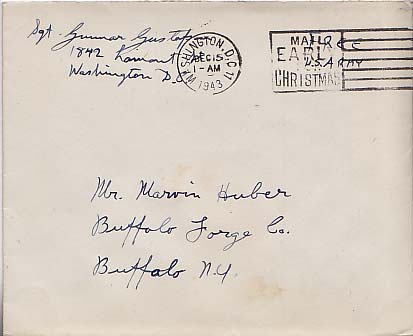 Sgt. Gunnar Gustafs
1842 Lamont
Washington D.C.
WASHINGTON, D.C. 11
DEC 15
1-AM
1943
MAIL
EARLY
FOR
CHRISTMAS
FREE
U.S. ARMY
Mr. Marvin Huber
Buffalo Forge Co.
Buffalo N.Y.